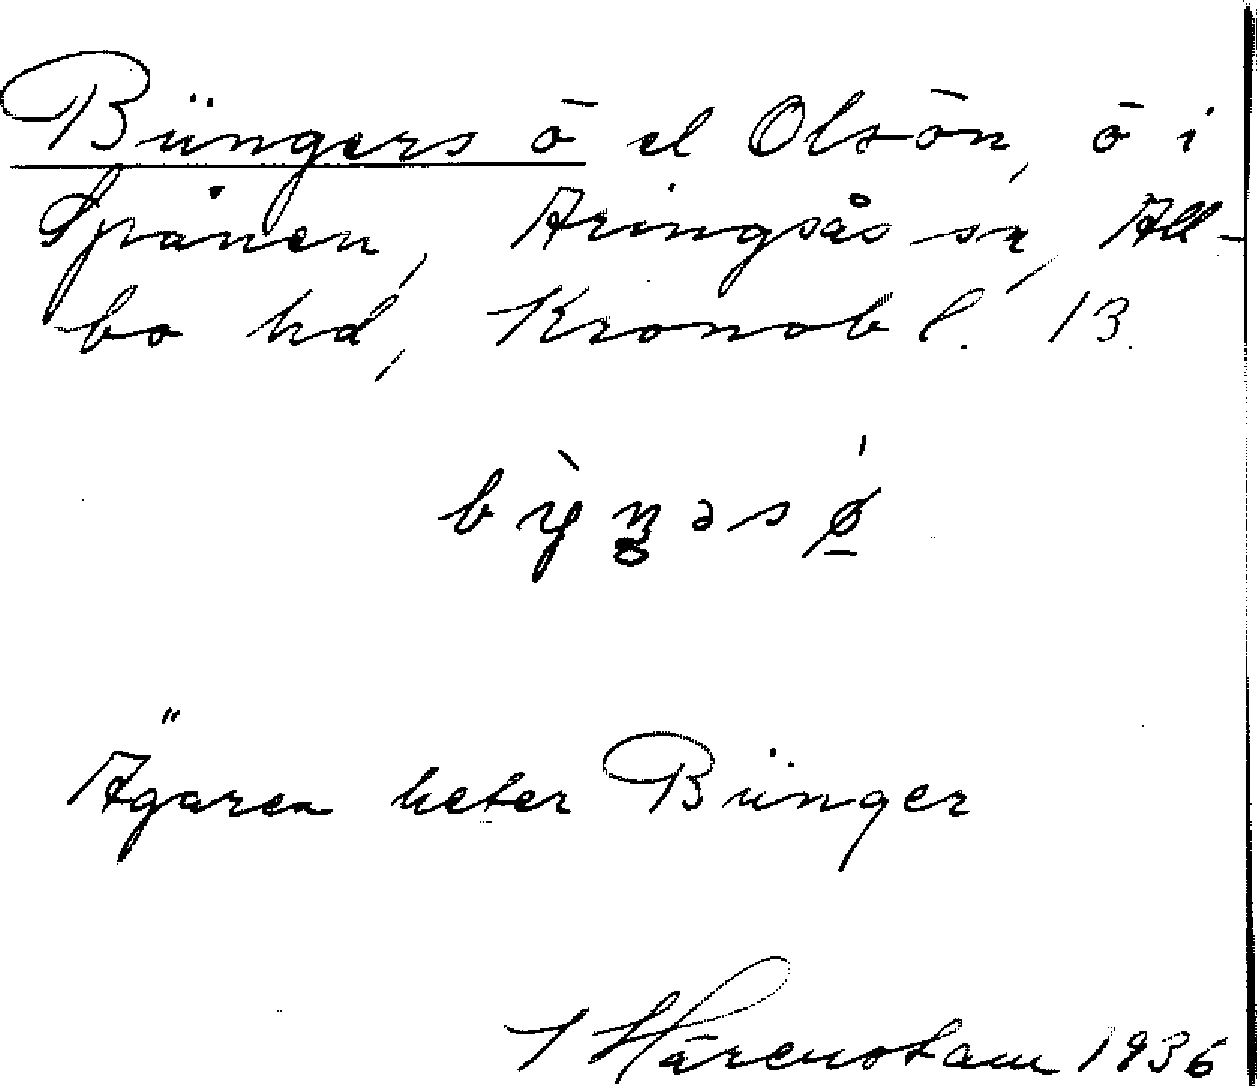 Büngers ö el Olsön, ö i
Spånen, Aringsås sn, All-
bo hd, Kronob l. 13.
Ägaren heter Bünger
J Härenstam 1936